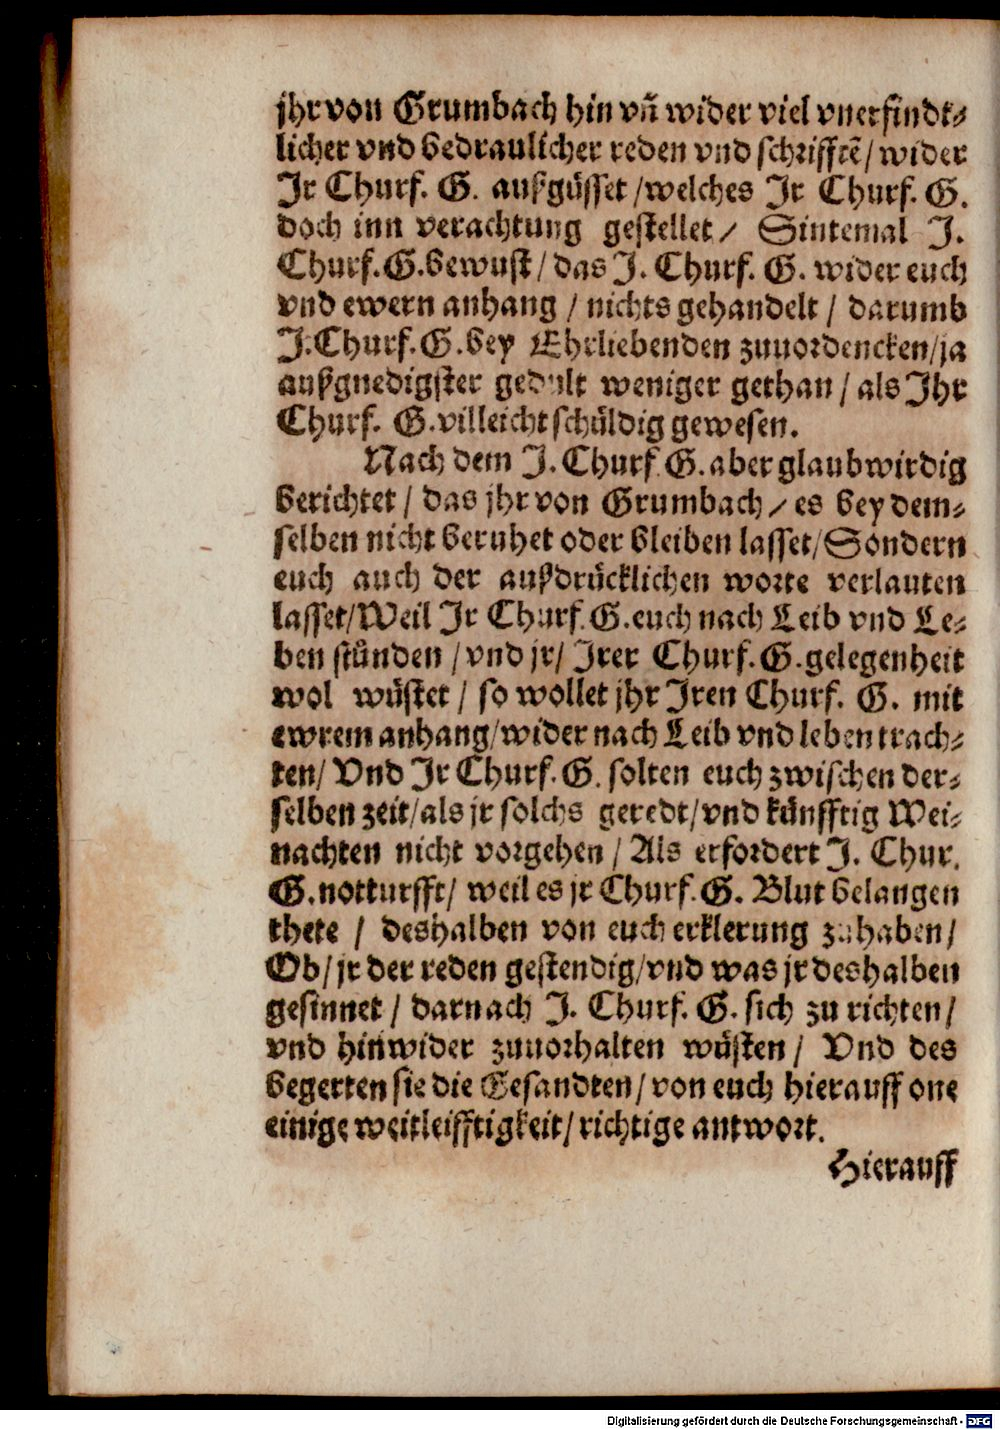 jhr von Grumbach hin vñ wider viel vnerfindt⸗
licher vnd bedraulicher reden vnd schrifftẽ / wider
Jr Churf. G. außgüsset / welches Jr Churf. G.
doch inn verachtung gestellet / Sintemal J.
Churf. G. bewust / das J. Churf. G. wider euch
vnd ewern anhang / nichts gehandelt / darumb
J. Churf. G. bey Ehrliebenden zuuordencken / ja
außgnedigster gedult weniger gethan / als Jhr
Churf. G. villeicht schüldig gewesen.
Nach dem J. Churf. G. aber glaubwirdig
berichtet / das jhr von Grumbach / es bey dem⸗
selben nicht beruhet oder bleiben lasset / Sondern
euch auch der außdrücklichen worte verlauten
lasset / Weil Jr Churf. G. euch nach Leib vnd Le⸗
ben stünden / vnd jr / Jrer Churf. G. gelegenheit
wol wüstet / so wollet jhr Jren Churf. G. mit
ewrem anhang / wider nach Leib vnd leben trach⸗
ten / Vnd Jr Churf. G. solten euch zwischen der⸗
selben zeit / als jr solchs geredt / vnd künfftig Wei⸗
nachten nicht vorgehen / Als erfordert J. Chur.
G. notturfft / weil es jr Churf. G. Blut belangen
thete / deshalben von euch erklerung zuhaben /
Ob / jr der reden gestendig / vnd was jr deshalben
gesinnet / darnach J. Churf. G. sich zu richten /
vnd hinwider zuuorhalten wüsten / Vnd des
begerten sie die Gesandten / von euch hierauff one
einige weitleifftigkeit / richtige antwort.
Hierauff
Digitalisierung gefördert durch die Deutsche Forschungsgemeinschaft - DFG